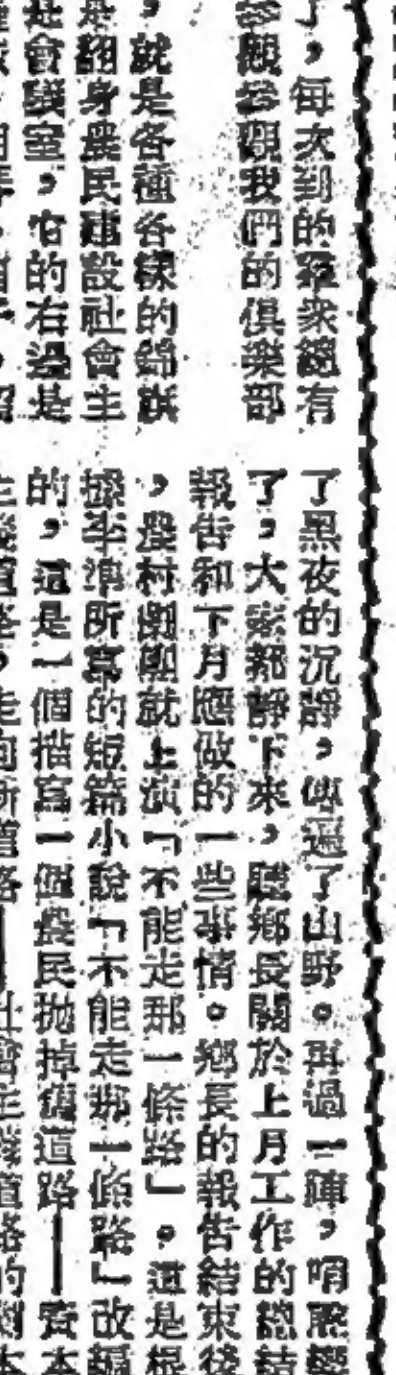 了，每次到的羣衆總有
參觀參觀我們的俱樂部
，就是各種各樣的錦旗
是翻身農民建設社會主
是會議室，它的右邊是
了黑夜的沉靜，傳遍了山野。再過一陣，哨聲響
了，大家都靜下來，聽鄉長關於上月工作的總結
報告和下月應做的一些事情。鄉長的報告結束後
，農村劇團就上演「不能走那一條路」。這是根
據李準所寫的短篇小說「不能走那一條路」改編
的，這是一個描寫一個農民拋掉舊道路——資本
主義道路，走向新道路——社會主義道路的劇本